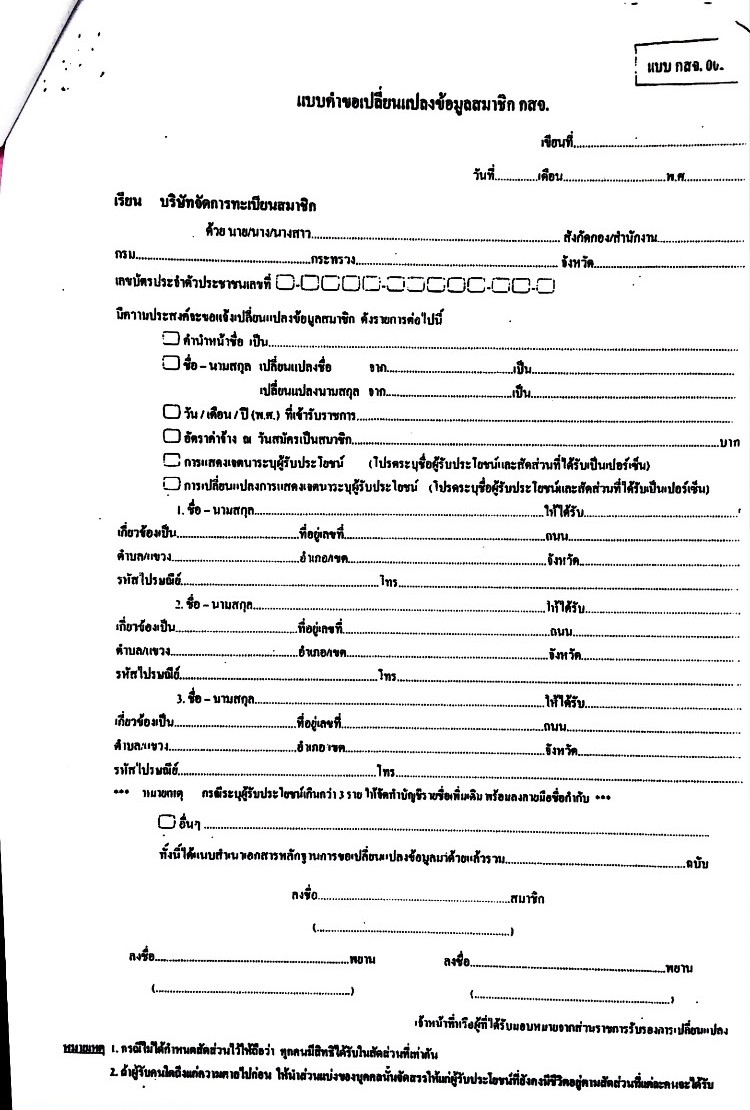 แบบ กสจ. 00.
แบบคำขอเปลี่ยนแปลงข้อมูลสมาชิก กสจ.
เขียนที่..............................
วันที่.............เดือน..............................พ.ศ...............
เรียน บริษัทจัดการทะเบียนสมาชิก
ด้วย นาย/นาง/นางสาว.................................................. สังกัดกอง/สำนักงาน....................
กรม........................................กระทรวง.............................................. จังหวัด..............................
เลขบัตรประจำตัวประชาชนเลขที่ ☐-☐☐☐☐-☐☐☐☐☐-☐☐-☐
มีความประสงค์จะขอแจ้งเปลี่ยนแปลงข้อมูลสมาชิก ดังรายการต่อไปนี้
☐ คำนำหน้าชื่อ เป็น..............................
☐ ชื่อ – นามสกุล เปลี่ยนแปลงชื่อ จาก..............................เป็น..............................
เปลี่ยนแปลงนามสกุล จาก..............................เป็น..............................
☐ วัน / เดือน / ปี (พ.ศ.) ที่เข้ารับราชการ..............................
☐ อัตราค่าจ้าง ณ วันสมัครเป็นสมาชิก..............................บาท
☐ การแสดงเจตนาระบุผู้รับประโยชน์ (โปรดระบุชื่อผู้รับประโยชน์และสัดส่วนที่ได้รับเป็นเปอร์เซ็น)
☐ การเปลี่ยนแปลงการแสดงเจตนาระบุผู้รับประโยชน์ (โปรดระบุชื่อผู้รับประโยชน์และสัดส่วนที่ได้รับเป็นเปอร์เซ็น)
1. ชื่อ – นามสกุล..............................ให้ได้รับ..............................
เกี่ยวข้องเป็น..............................ที่อยู่เลขที่..............................ถนน..............................
ตำบล/แขวง..............................อำเภอ/เขต..............................จังหวัด..............................
รหัสไปรษณีย์..............................โทร..............................
2. ชื่อ – นามสกุล..............................ให้ได้รับ..............................
เกี่ยวข้องเป็น..............................ที่อยู่เลขที่..............................ถนน..............................
ตำบล/แขวง..............................อำเภอ/เขต..............................จังหวัด..............................
รหัสไปรษณีย์..............................โทร..............................
3. ชื่อ – นามสกุล..............................ให้ได้รับ..............................
เกี่ยวข้องเป็น..............................ที่อยู่เลขที่..............................ถนน..............................
ตำบล/แขวง..............................อำเภอ/เขต..............................จังหวัด..............................
รหัสไปรษณีย์..............................โทร..............................
*** หมายเหตุ กรณีระบุผู้รับประโยชน์เกินกว่า 3 ราย ให้จัดทำบัญชีรายชื่อเพิ่มเติม พร้อมลงลายมือชื่อกำกับ ***
☐ อื่นๆ ..............................
ทั้งนี้ได้แนบสำเนาเอกสารหลักฐานการขอเปลี่ยนแปลงข้อมูลมาด้วยแล้วรวม..............................ฉบับ
ลงชื่อ..............................สมาชิก
(..............................)
ลงชื่อ..............................พยาน ลงชื่อ..............................พยาน
(..............................) (..............................)
เจ้าหน้าที่หรือผู้ที่ได้รับมอบหมายจากส่วนราชการรับรองการเปลี่ยนแปลง
หมายเหตุ 1. กรณีไม่ได้กำหนดสัดส่วนไว้ให้ถือว่า ทุกคนมีสิทธิได้รับในสัดส่วนที่เท่ากัน
2. ถ้าผู้รับคนใดถึงแก่ความตายไปก่อน ให้นำส่วนแบ่งของบุคคลนั้นจัดสรรให้แก่ผู้รับประโยชน์ที่ยังคงมีชีวิตอยู่ตามสัดส่วนที่แต่ละคนจะได้รับ